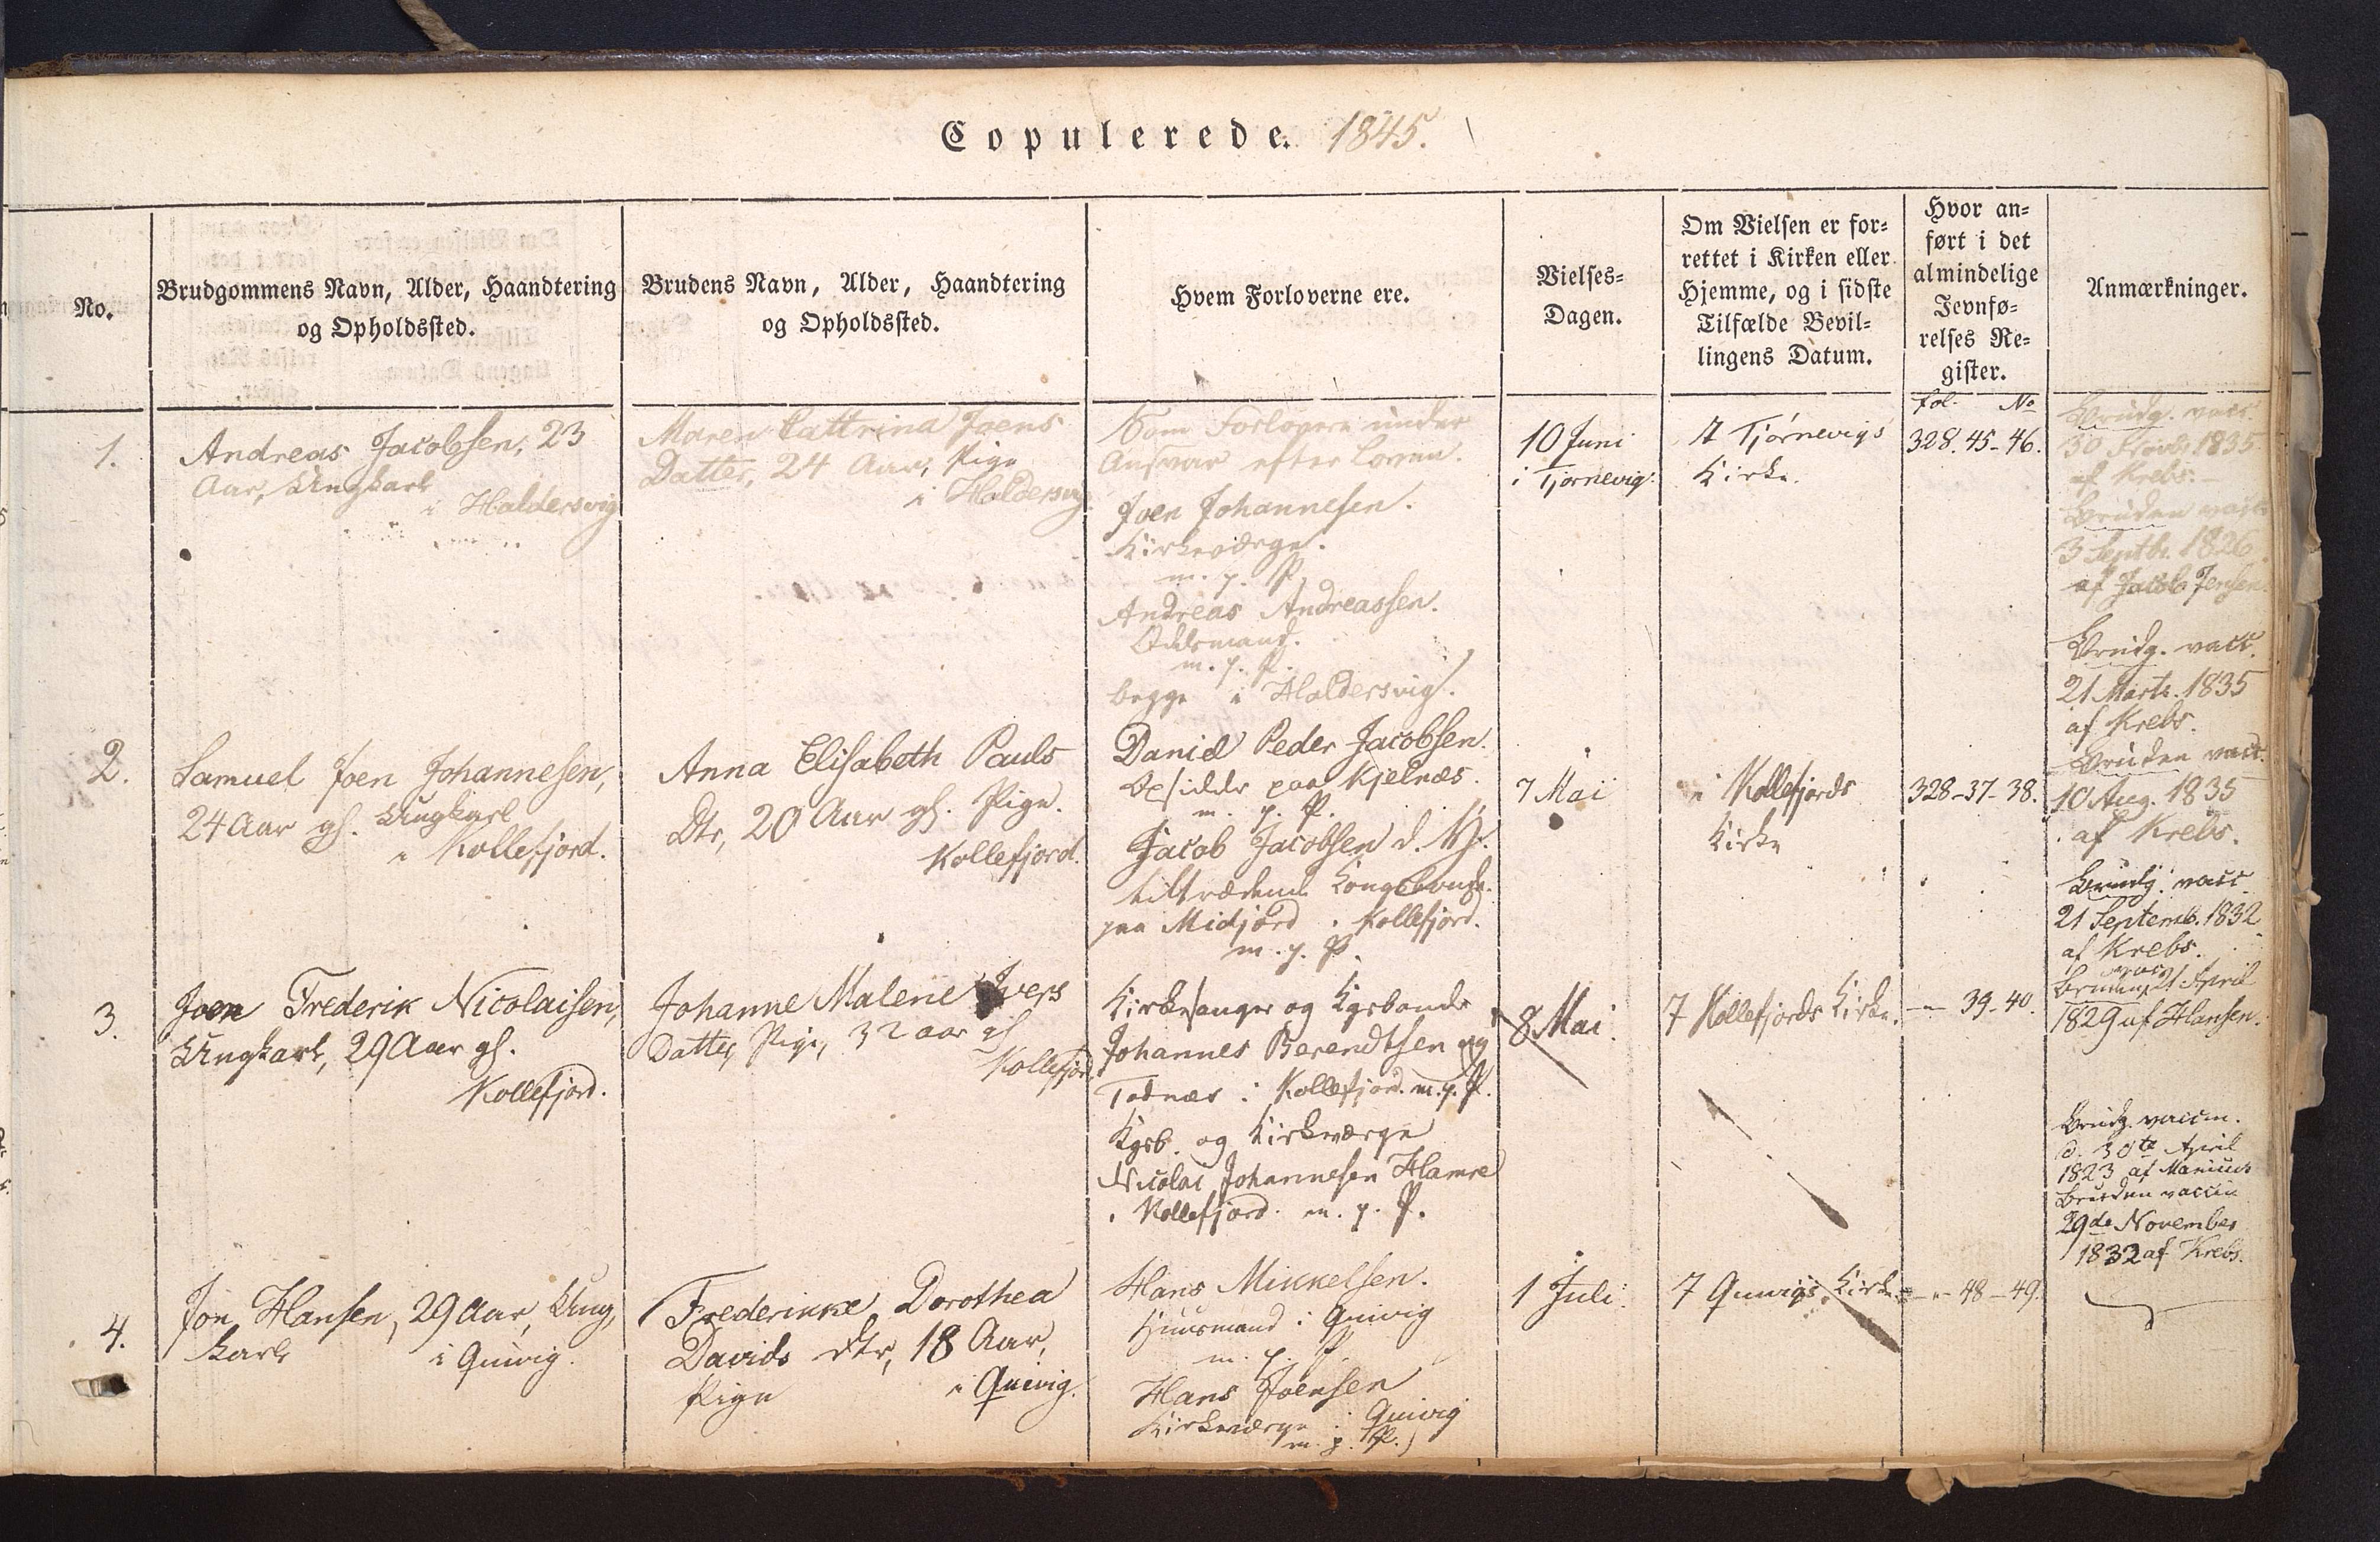 Copulerede. 1845.
No.
Brudgommens Navn, Alder, Haandtering
og Opholdssted.
Brudens Navn, Alder, Haandtering
og Opholdssted.
Hvem Forloverne ere.
Vielses-
Dagen.
Om Vielsen er for-
rettet i Kirken eller
Hjemme, og i sidste
Tilfælde Bevil-
lingens Datum.
Hvor an-
ført i det
almindelige
Jevnfø-
relses Re-
gister.
Anmærkninger.
fol. No
1.
Andreas Jacobsen, 23
Aar, Ungkarl
i Haldersvig
Maren Cattrina Joens
Datter, 24 Aar, Pige
i Haldersvig.
Som Forlovere under
Ansvar efter Loven.
Joen Johannesen.
Kirkeværge.
m. p. P.
Andreas Andreassen.
Odelsmand.
m. p. P.
begge i Haldersvig.
10 Juni
i Tjørnevig.
Tjørnevigs
Kirke.
328. 45-46.
Brudg. vacc.
30 1835
af Krebs.
Bruden vacc.
3 Septbr. 1826
af Jacob Jensen.
2.
Samuel Joen Johannesen,
24 Aar gl. Ungkarl
i Kollefjord.
Anna Elisabeth Pauls
Dtr, 20 Aar gl. Pige.
Kollefjord.
Daniel Peder Jacobsen.
Opsidder paa Kjelnæs.
m. p. P.
Jacob Jacobsen d.
tiltrædende Kongsbonde.
paa Midjord i Kollefjord.
m. p. P.
7 Mai
i Kollefjords
Kirke
328-37-38.
Brudg. vacc.
21 Marts. 1835
af Krebs.
Bruden vacc.
10 Aug. 1835
af Krebs.
3.
Joen Frederik Nicolaisen,
Ungkarl, 29 Aar gl.
Kollefjord.
Johanne Malene Ivers
Datter, Pige, 32 aar gl
Kollefjord.
Kirkesanger og Kgsbonde
Johannes Berendtsen
i Kollefjord. m. p. P.
Kgsb. og Kirkeværge
Nicolai Johannesen Hamre
i Kollefjord. m. p. P.
8 Mai.
Kollefjords Kirke.
- 39-40.
Brudg. vacc.
21 Septemb. 1832
af Krebs.
Bruden vacc. 21 April
1829 af Hansen.
4.
Jon Hansen, 29 Aar, Ung,
karl i Qvivig.
Frederikke Dorothea
Davids dtr, 18 Aar,
Pige i Qvivig.
Hans Mikkelsen.
Huusmand i Qvivig
m. p. P.
Hans Joensen
Kirkeværge i Qvivig
m. p. P.
1 Juli.
Qvivigs Kirke.
- 48-49.
Brudg. vaccin.
d. 30te April
1823 af
Bruden vaccin
29de November
1832 af Krebs.